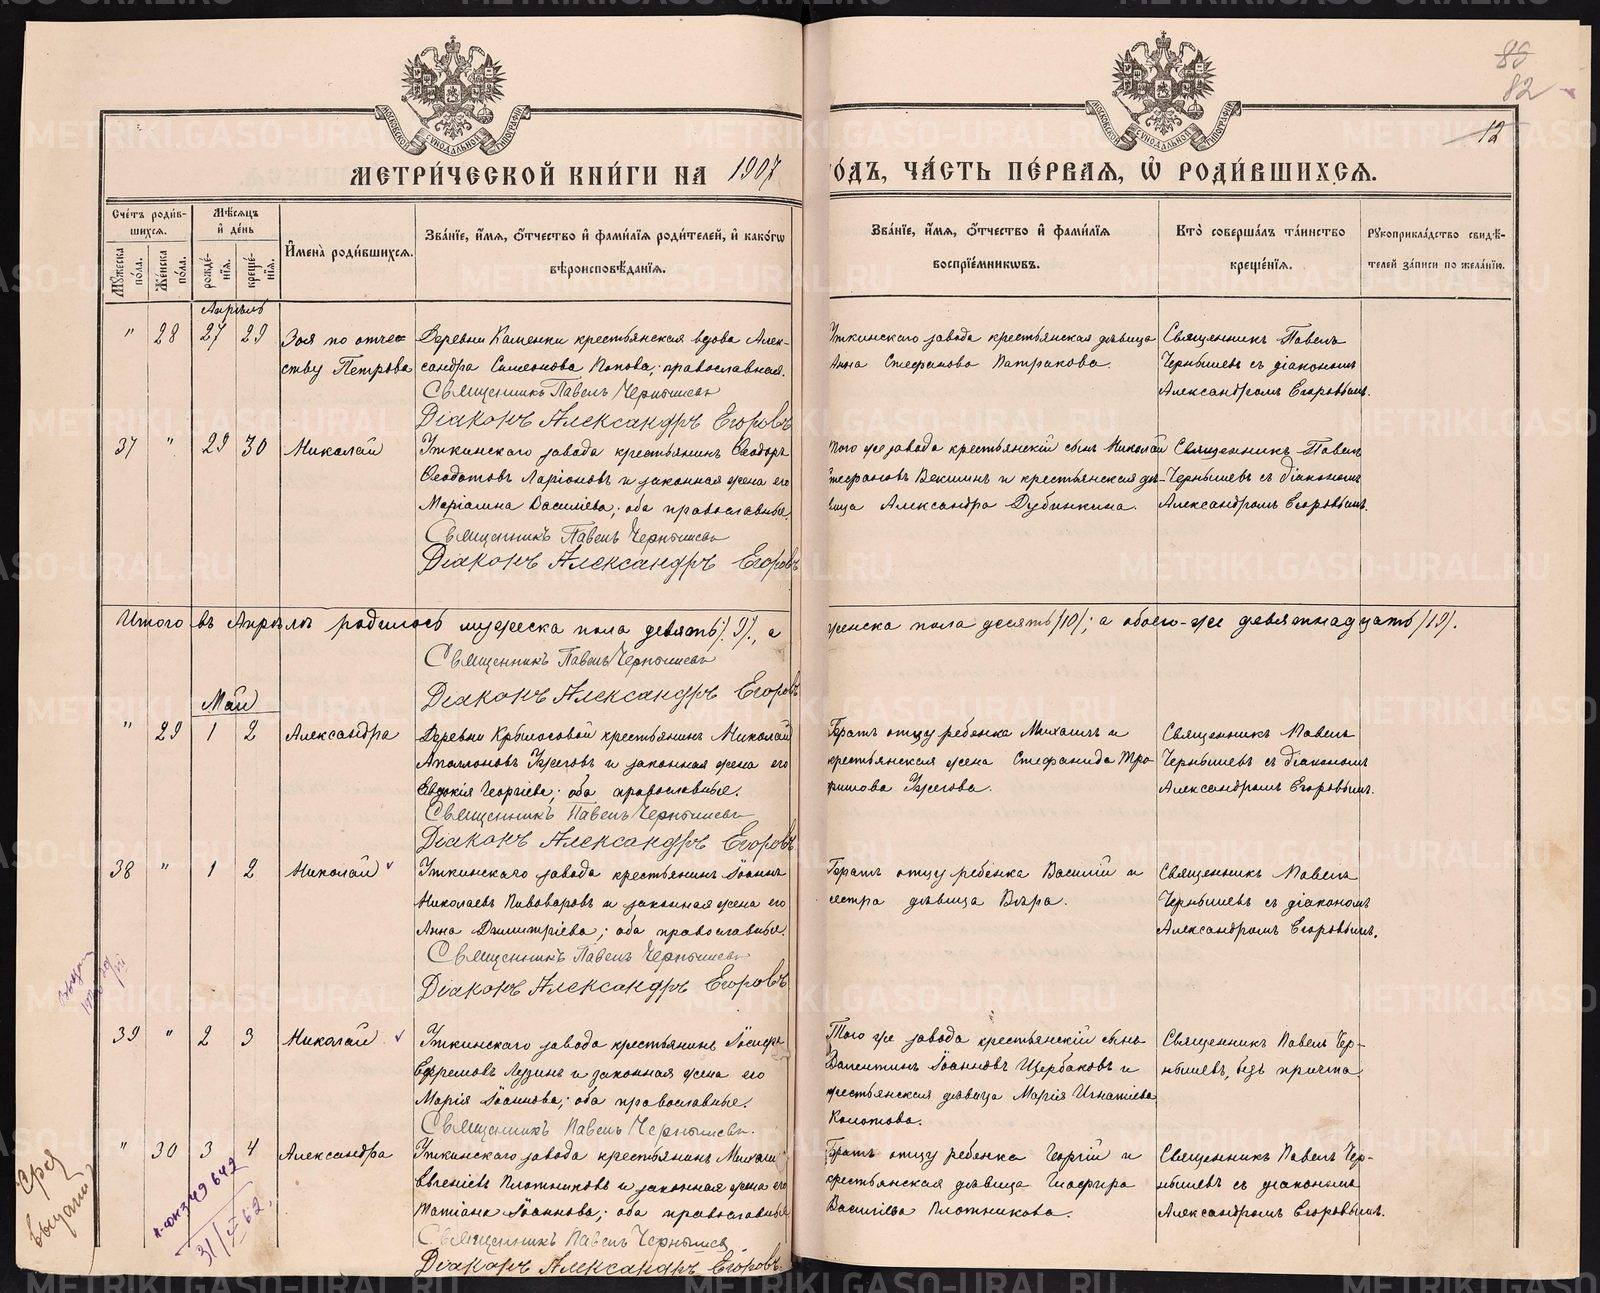 89
82
12
МОСКОВСКОЙ СѴНОДАЛЬНОЙ ТИПОГРАФІИ
МОСКОВСКОЙ СѴНОДАЛЬНОЙ ТИПОГРАФІИ
МЕТРИ́ЧЕСКОЙ КНИ́ГИ НА 1907
ГО́ДЪ, ЧА́СТЬ ПЕ́РВАѦ, Ѽ РОДИ́ВШИХСѦ.
Сче́тъ роди́вшихсѧ.
Мꙋ́жеска по́ла.
Же́нска по́ла.
Мѣ́сѧцъ и҆ де́нь
рожде́нїѧ.
креще́нїѧ.
И҆мена̀ роди́вшихсѧ.
Зва́нїе, и҆́мѧ, ѻ҆́тчество и҆ фами́лїѧ роди́телей, и҆ како́гѡ
вѣроисповѣ́данїѧ.
Зва́нїе, и҆́мѧ, ѻ҆́тчество и҆ фами́лїѧ
воспрїе́мникѡвъ.
Кто̀ соверша́лъ та́инство
креще́нїѧ.
Рꙋкоприкла́дство свидѣ́-
телей за́писи по жела́нїю.
Апрѣль
" 28 27 29 Зоя по отче-
ству Петрова
Деревни Каменки крестьянская вдова Алек-
сандра Симеонова Попова; православная.
Священникъ Павелъ Чернышевъ
Діаконъ Александръ Егоровъ
Уткинскаго завода крестьянская дѣвица
Анна Стефанова Патракова.
Священникъ Павелъ
Чернышевъ съ діакономъ
Александромъ Егоровымъ.
37 " 29 30 Николай
Уткинскаго завода крестьянинъ Ѳеодоръ
Ѳеодотовъ Ларіоновъ и законная жена его
Маріамна Василіева; оба православные.
Священникъ Павелъ Чернышевъ
Діаконъ Александръ Егоровъ
Того же завода крестьянскій сынъ Николай
Стефановъ Векшинъ и крестьянская дѣ-
вица Александра Дубинкина.
Священникъ Павелъ
Чернышевъ съ діакономъ
Александромъ Егоровымъ.
Итого въ Апрѣлѣ родилось мужеска пола девять /9/, а
женска пола десять /10/; а обоего-же девятнадцать /19/.
Священникъ Павелъ Чернышевъ
Діаконъ Александръ Егоровъ
Май
" 29 1 2 Александра
Деревни Крылосовой крестьянинъ Николай
Аполлоновъ Ужеговъ и законная жена его
Евдокія Георгіева; оба православные.
Священникъ Павелъ Чернышевъ
Діаконъ Александръ Егоровъ
Братъ отцу ребенка Михаилъ и
крестьянская жена Стефанида Тро-
фимова Ужегова.
Священникъ Павелъ
Чернышевъ съ діакономъ
Александромъ Егоровымъ.
38 " 1 2 Николай
Уткинскаго завода крестьянинъ Іоаннъ
Николаевъ Пивоваровъ и законная жена его
Анна Димитріева; оба православные.
Священникъ Павелъ Чернышевъ
Діаконъ Александръ Егоровъ
Братъ отцу ребенка Василій и
сестра дѣвица Вѣра.
Священникъ Павелъ
Чернышевъ съ діакономъ
Александромъ Егоровымъ.
39 " 2 3 Николай
Уткинскаго завода крестьянинъ Іосифъ
Ефремовъ Лузинъ и законная жена его
Марія Іоаннова; оба православные.
Священникъ Павелъ Чернышевъ.
Того же завода крестьянскій сынъ
Валентинъ Іоанновъ Щербаковъ и
крестьянская дѣвица Марія Игнатіева
Колотова.
Священникъ Павелъ Чер-
нышевъ, безъ причта
" 30 3 4 Александра
Уткинскаго завода крестьянинъ Михаилъ
Евгеніевъ Плотниковъ и законная жена его
Татіана Іоаннова; оба православные
Священникъ Павелъ Чернышев
Діаконъ Александръ Егоровъ.
Братъ отцу ребенка Георгій и
крестьянская дѣвица Глафира
Василіева Плотникова.
Священникъ Павелъ Чер-
нышевъ съ діакономъ
Александромъ Егоровымъ.
349642
31/ 62.
METRIKI.GASO-URAL.RU